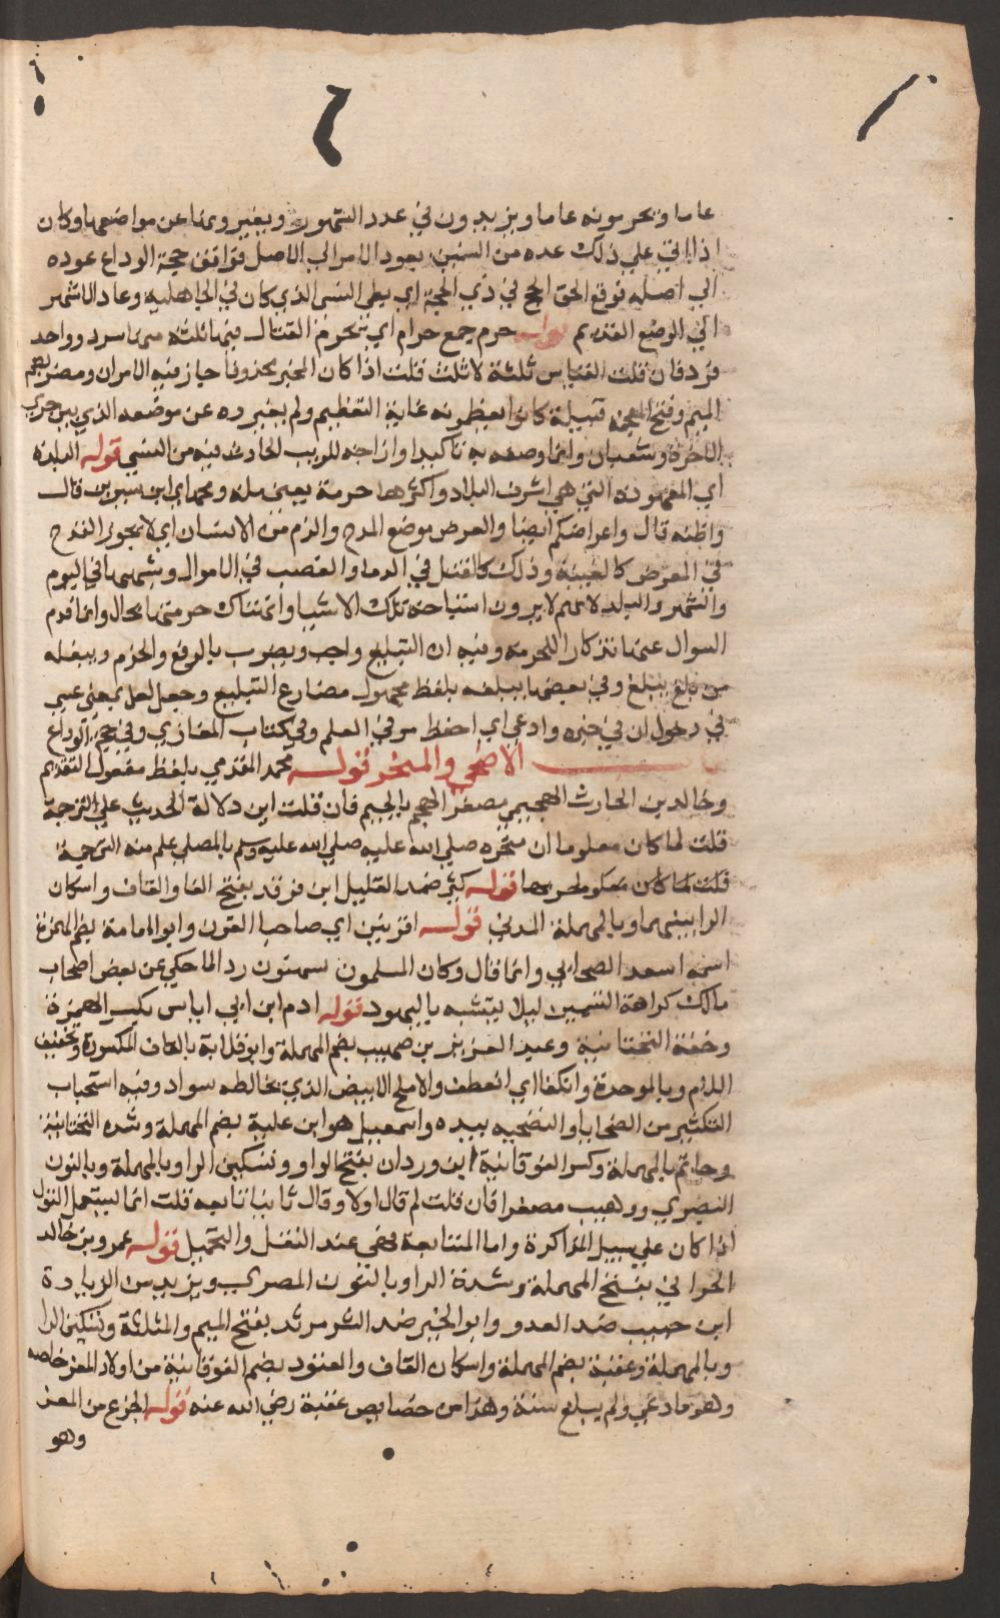 عاما ويحرمونه عاما ويزيدون في عدد الشهور ويغيرونها عن مواضعها وكان
اذا اتي علي ذلك عده من السنين يعود الامر الي الاصل فوافق حجة الوداع عوده
الي اصله فوقع الحق الحج في ذي الحجة اي بطل النسي الذي كان في الجاهلية وعاد الاشهر
الي الوضع القديم قوله حرم جمع حرام اي يحرم القتال فيها ثلثة منها سرد وواحد
فرد فان قلت القياس ثلثة لا ثلث قلت اذا كان المميز محذوفا جاز فيه الامران ومضر بضم
الميم وفتح المعجمة قبيلة كانوا يعظمونه غاية التعظيم ولم يغيروه عن موضعه الذي بين جمادي
الاخرة وشعبان وانما وصفه به تاكيدا وازاحة للريب الحادث فيه من النسي قوله البلدة
اي المعهودة التي هي اشرف البلاد واكثرها حرمة يعني مكة ومحمد اي ابن سيرين قال
واظنه قال واعراضكم ايضا والعرض موضع المدح والذم من الانسان اي لا يجوز القدح
في العرض كالغيبة وذلك كالقتل في الدما والغصب في الاموال وشبهها في اليوم
والشهر والبلد لانهم لا يرون استباحة تلك الاشيا وانتهاك حرمتها بحال وانما قدم
السوال عنها تذكارا للحرمة وفيه ان التبليغ واجب ويضرب بالرفع والجزم ويبلغه
من بلغ يبلغ وفي بعضها يبلغه بلفظ مجهول مضارع التبليغ وجعل لعل بمعني عسي
في دخول ان في خبره وادعي اي احفظ مر في العلم وفي كتاب المغازي وفي حجة الوداع
باب الاضحي والمنحر قوله محمد المقدمي بلفظ مفعول التقديم
وخالد بن الحارث الهجيمي مصغر الهجم بالجيم فان قلت اين دلالة الحديث علي الترجمة
قلت لما كان معلوما ان منحره صلي الله عليه صلي الله عليه وسلم بالمصلي علم منه الترجمة
قلت لما كان معلوما قوله كثير ضد القليل ابن فرقد بفتح الفا والقاف واسكان
الرا بينهما وبالمهملة المدني قوله اقرنين اي صاحبا القرون وابو امامة بضم الهمزة
اسمه اسعد الصحابي وانما قال وكان المسلمون يسمنون ردا لما حكي عن بعض اصحاب
مالك كراهة التسمين ليلا يتشبه باليهود قوله ادم ابن ابي اياس بكسر الهمزة
وخفة التحتانية وعبد العزيز بن صهيب بضم المهملة وابو قلابة بالقاف المكسورة وتخفيف
اللام وبالموحدة وانكفا اي انعطف والاملح الابيض الذي يخالطه سواد وفيه استحباب
التكثير من الضحايا والتضحيه بيده واسمعيل هو ابن علية بضم المهملة وشده التحتانية
وحاتم بالمهملة وكسر الفوقانية ابن وردان بفتح الواو وتسكين الرا وبالمهملة وبالنون
البصري ووهيب مصغرا فان قلت لم قال اولا وقال ثانيا تابعه قلت انما يستعمل القول
اذا كان علي سبيل المذاكرة واما المتابعة فهي عند النقل والتحميل قوله عمرو بن خالد
الحراني بفتح المهملة وشدة الرا وبالنون المصري ويزيد من الزيادة
ابن حبيب ضد العدو وابو الخير ضد الشر مرثد بفتح الميم والمثلثة وتسكين الرا
وبالمهملة وعقبة بضم المهملة واسكان القاف والعتود بضم الفوقانية من اولاد المعز خاصه
وهو ما رعي ولم يبلغ سنة وهذا من خصايص عقبة رضي الله عنه قوله الجزع من المعز
وهو